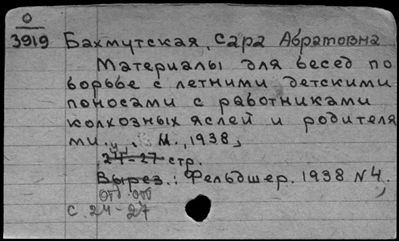 О
3919 Бахмутская, Сара Абрамовна
Материалы для бесед по
борьбе с летними детскими
поносами с работниками
колхозных яслей и родителя
ми. М., 1938,
24-27 стр.
Вырез.: Фельдшер. 1938 №4.,
Отд. отт.
с. 24-27